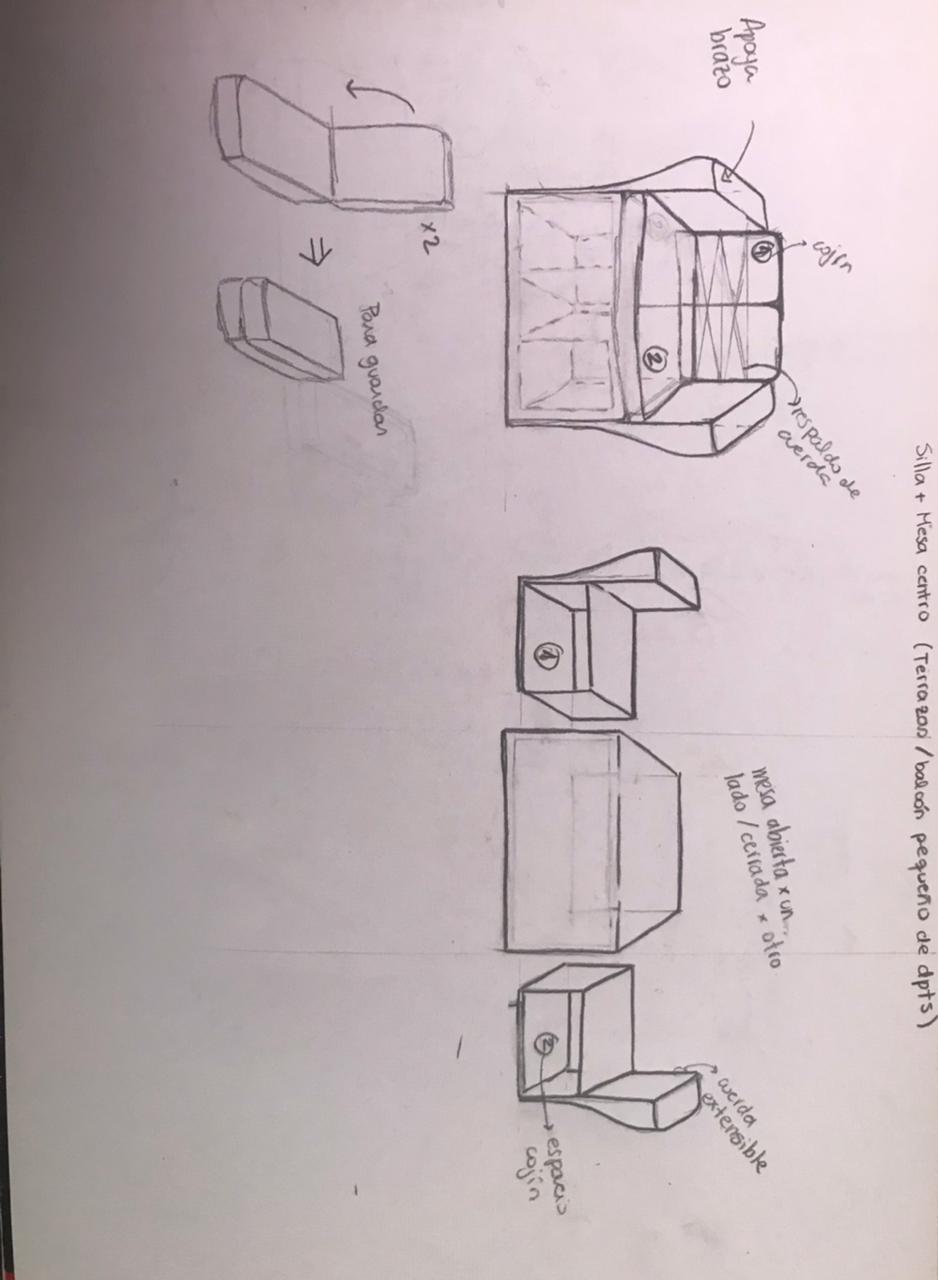 Silla + Mesa centro (Terrazas/balcón pequeño de dpts)
cojín
respaldo de
cuerda
Apoya
brazo
1
2
mesa abierta x un
lado / cerrada x otro
cuerda
extensible
1
2
espacio
cojín
x2
Para guardar